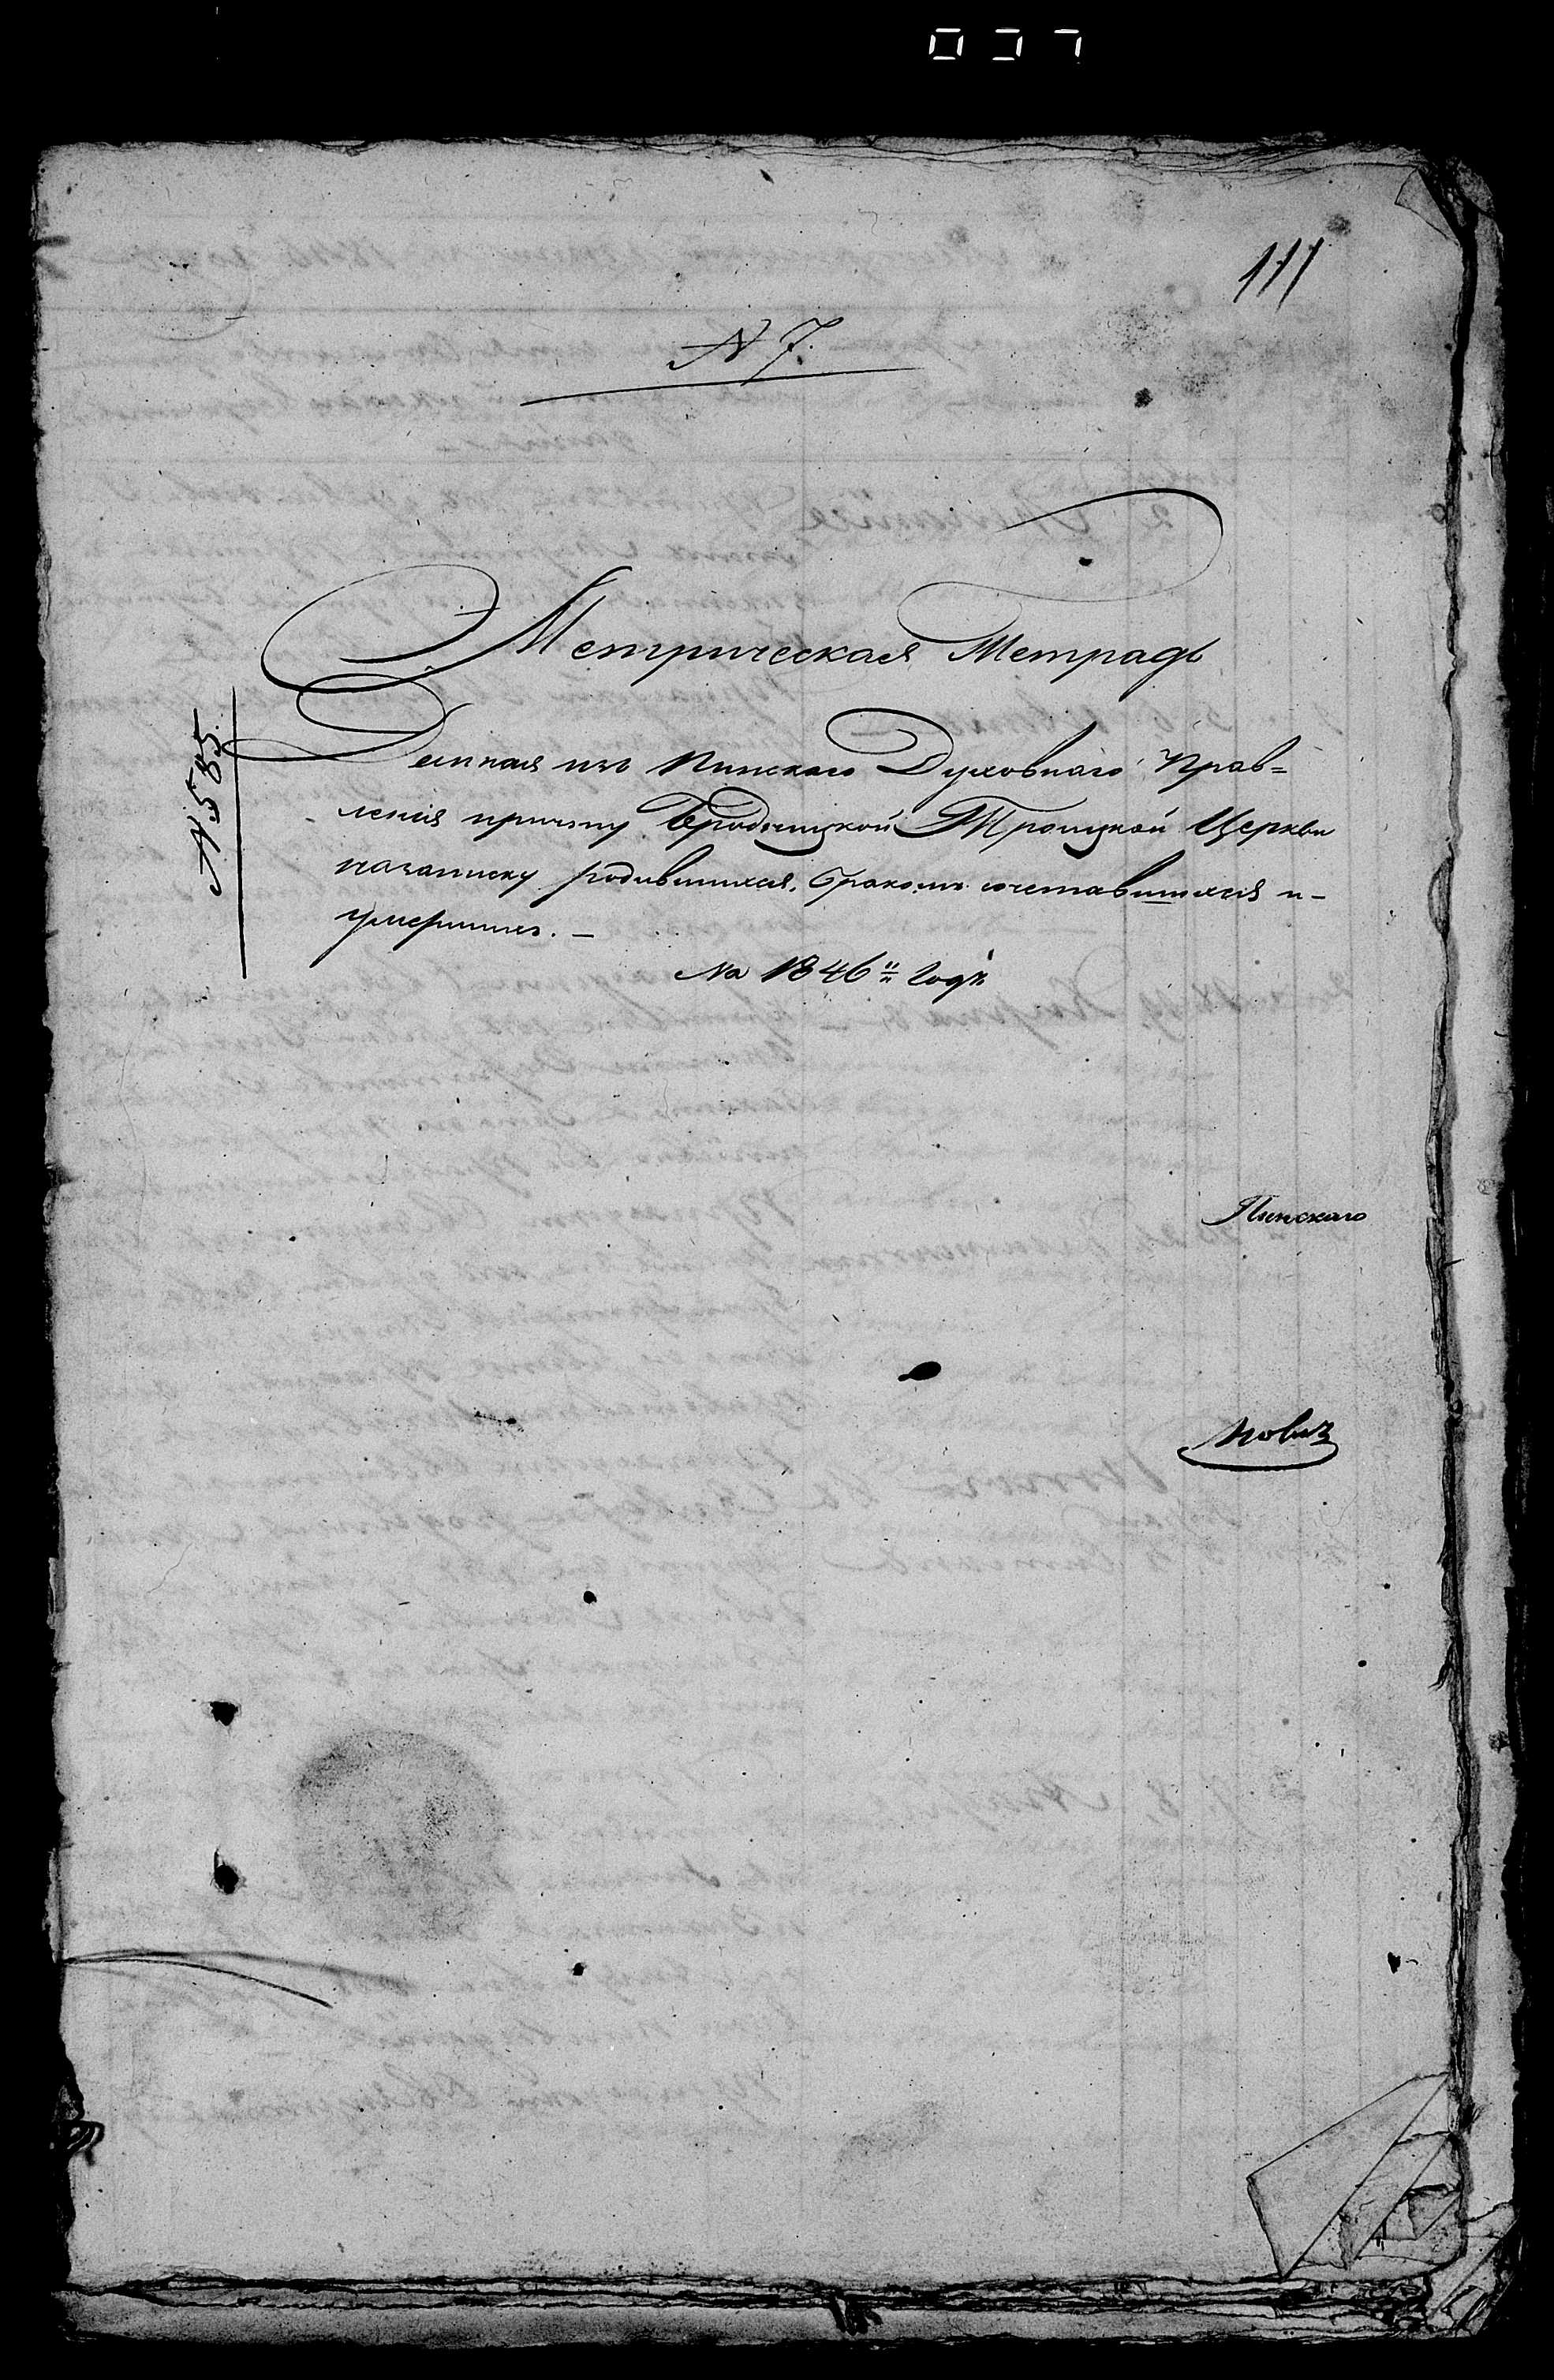 037
111
N 7.
Метрическая Тетрадь
N 585
Данная изъ Пинскаго Духовнаго Прав=
ленія причту Бродницкой Троицкой Церкви
на записку родившихся, бракомъ сочетавшихся и-
умершихъ. —
На 1846й годъ
Пинскаго